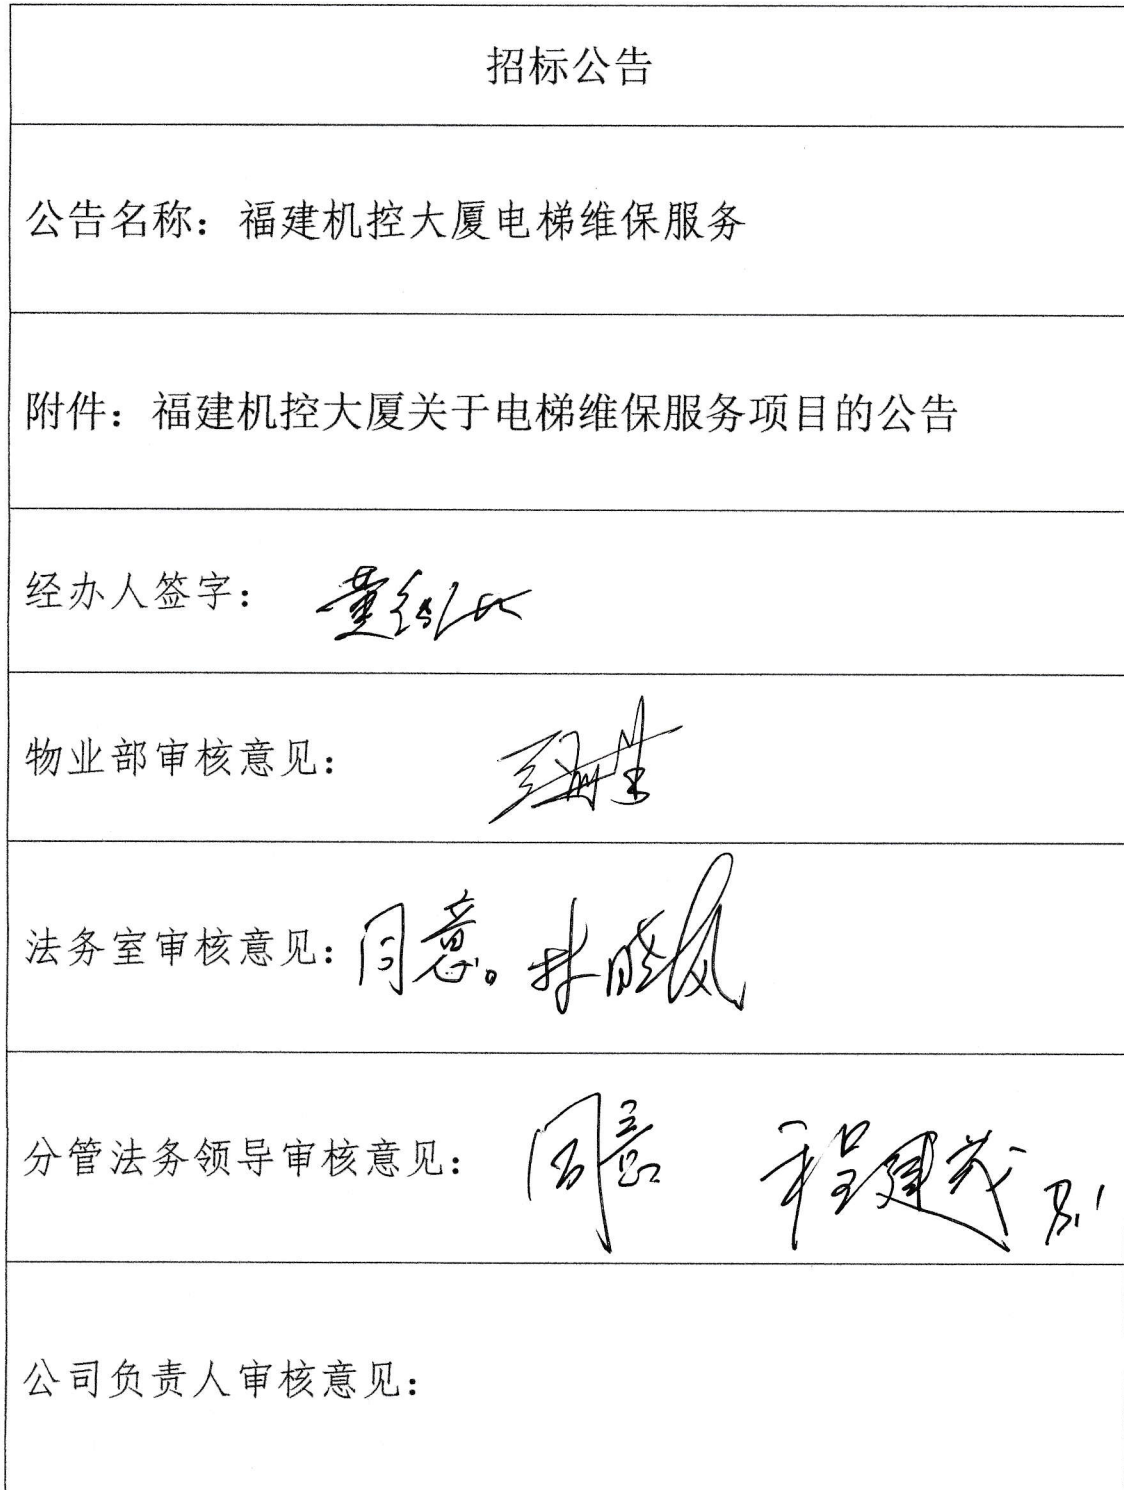 招标公告
公告名称：福建机控大厦电梯维保服务
附件：福建机控大厦关于电梯维保服务项目的公告
经办人签字：
物业部审核意见：
法务室审核意见：同意。林晓凤
分管法务领导审核意见：同意 程建茂
公司负责人审核意见：